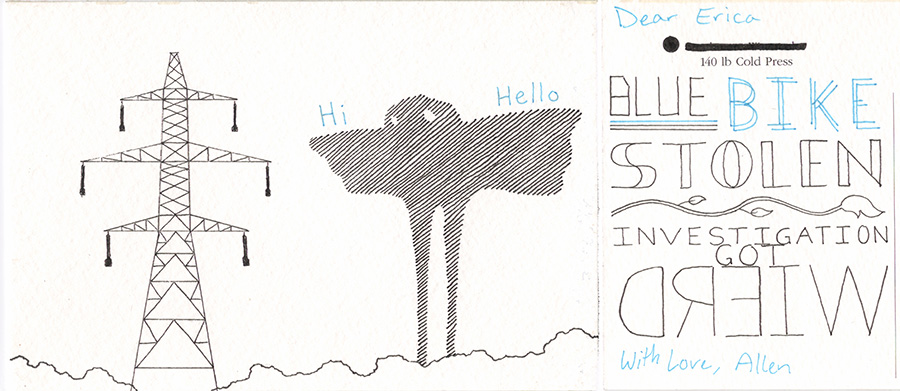 Hi
Hello
Dear Erica
140 lb Cold Press
BLUE BIKE
STOLEN
INVESTIGATION
GOT
WIERD
With Love, Allen